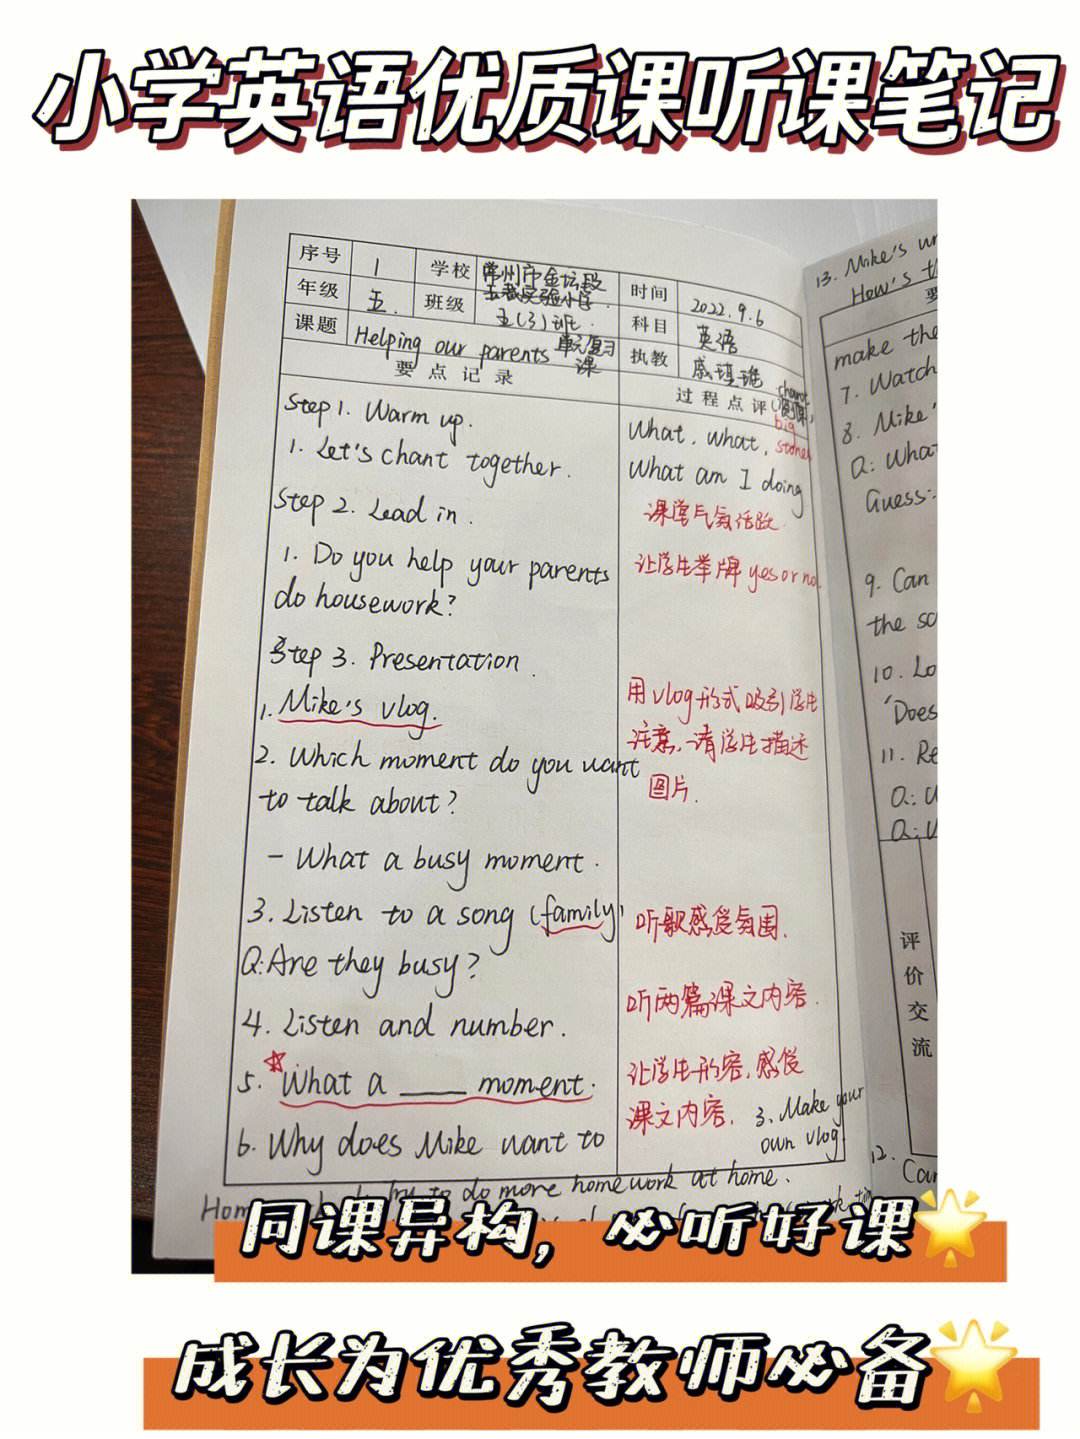 小学英语优质课听课笔记
序号 1 学校 常州市金坛段
玉裁实验小学 时间 2022.9.6
年级 五. 班级 五(3)班. 科目 英语
课题 Helping our parents 单元复习课 执教
要点记录 过程点评
chant
Step 1. Warm up.
1. Let's chant together.
Step 2. Lead in.
1. Do you help your parents
do housework?
Step 3. Presentation.
1. Mike's vlog.
2. Which moment do you want
to talk about?
- What a busy moment.
3. Listen to a song (family)
Q: Are they busy?
4. Listen and number.
5. What a ____ moment.
6. Why does Mike want to
What, what,
big
What am I doing
课堂气氛活跃
让学生举牌 yes or no.
用vlog形式吸引学生
注意,请学生描述
图片.
听歌感受氛围.
听两篇课文内容.
让学生形容,感受
课文内容.
3. Make your
own vlog.
to do more homework at home.
13. Mike's
How's
make the
7. Watch
8. Mike'
Q: What
Guess:
9. Can
the
10. Lo
'Does
11. Re
Q: W
Q: W
评价交流
12.
Can
同课异构，必听好课
成长为优秀教师必备